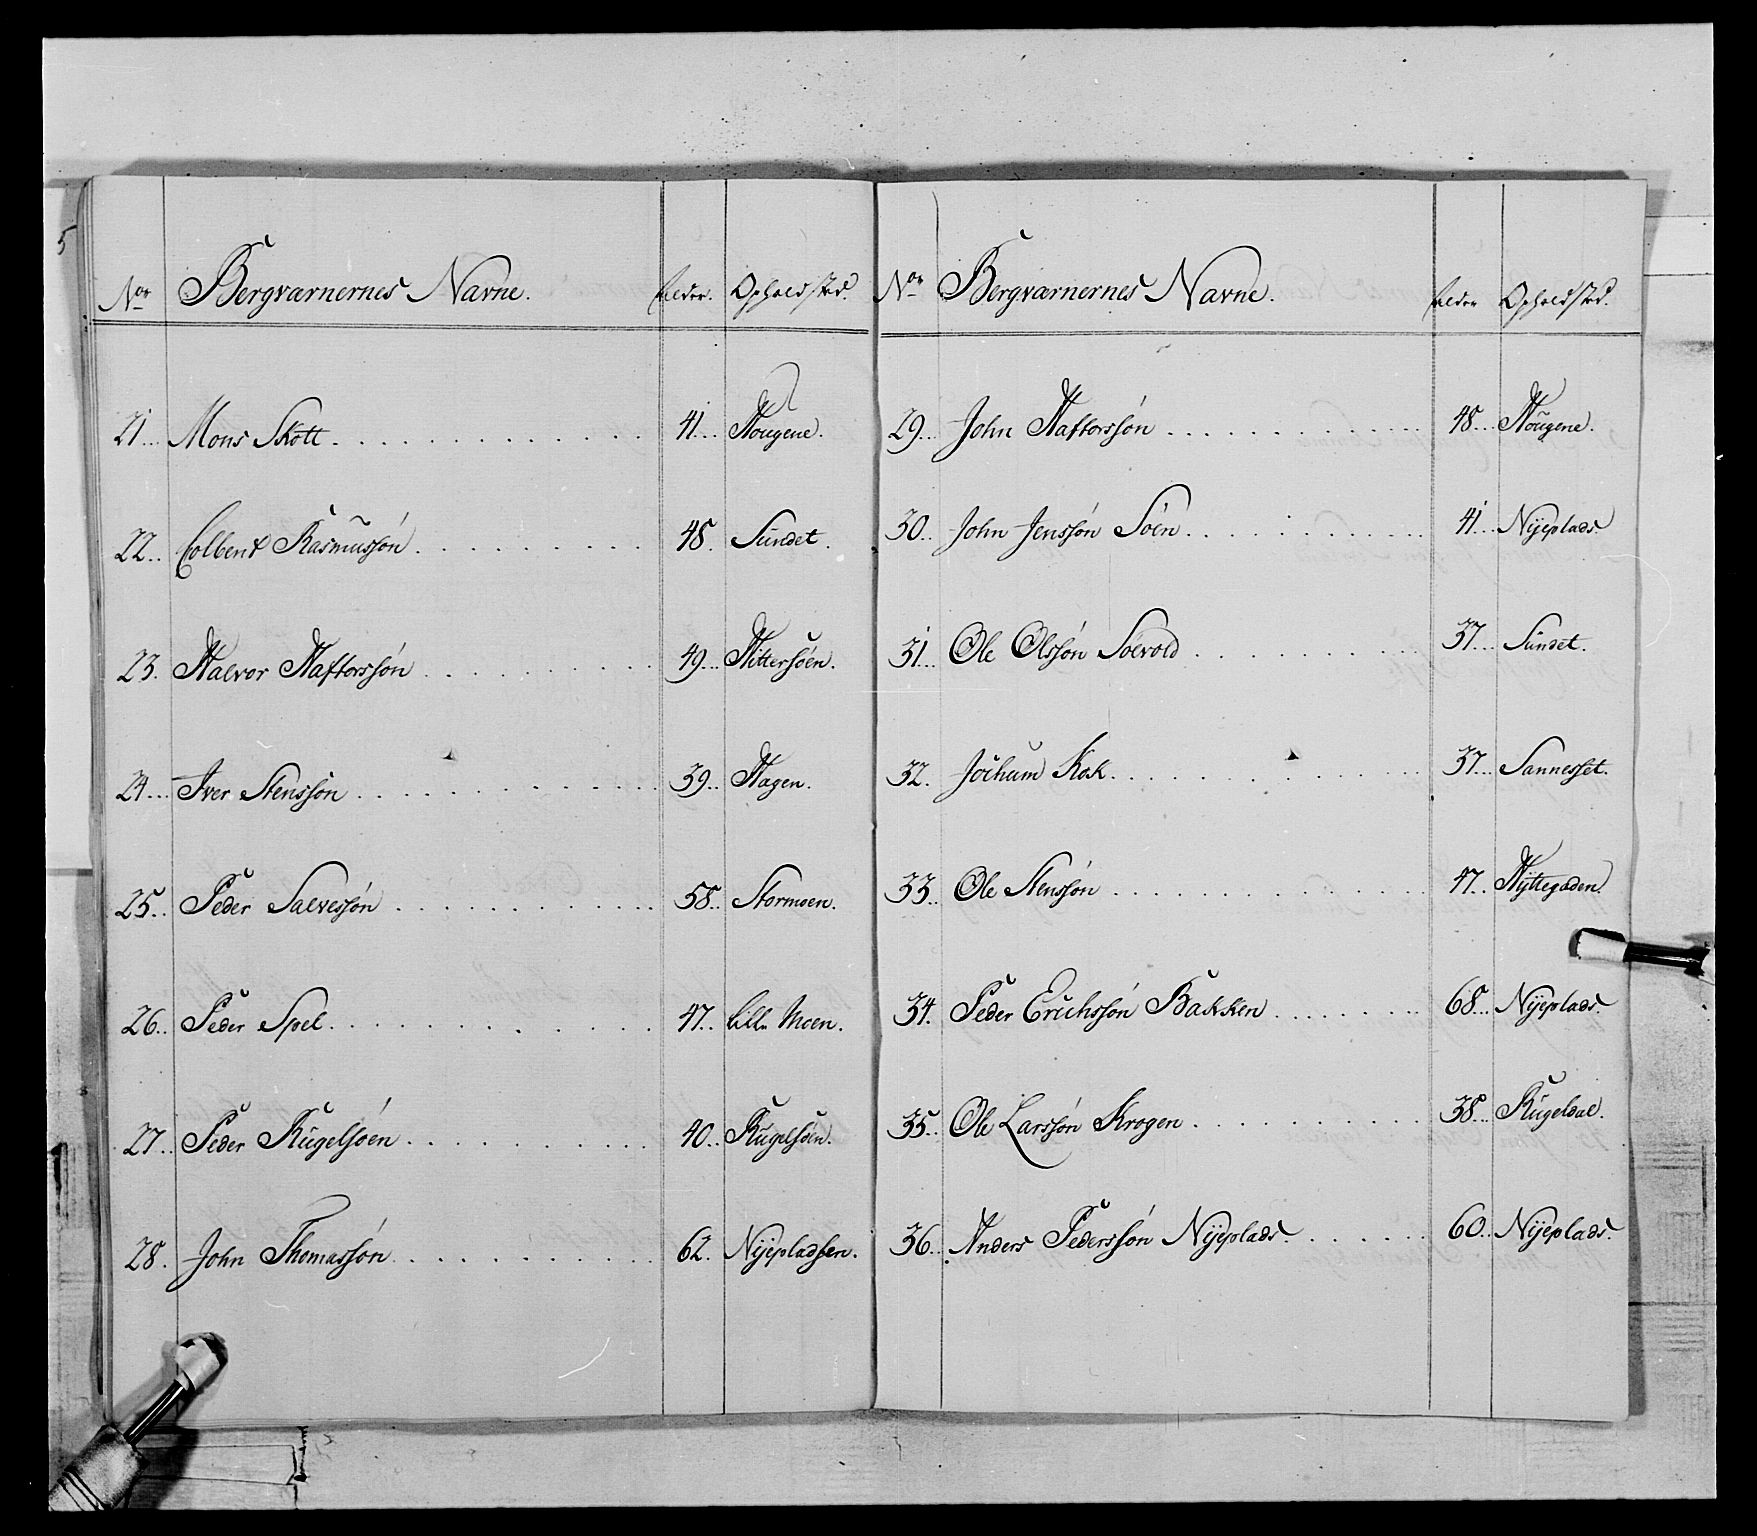 5
No Bergværnernes Navne. Alder. Opholdsted.
21... Mons Skott 41... Hougene.
22.. Colbent Rasmussøn 48. Sundet.
23. Halvor Haftorssøn 49... Hittersøen.
24... Iver Stenssøn 39.. Hagen.
25.. Peder Salvessøn 58.. Stormoen.
26.. Peder Spel 47.. Lille Moen.
27.. Peder Kugelsøen 40.. Kugelsøen.
28. John Thomassøn 62. Nyepladsen.
No Bergværnernes Navne. Alder Opholdsted.
29.. John Haftorssøn 48... Hougene.
30.. John Jenssøn Söen 41... Nyeplads.
31... Ole Olssøn Soevold 37... Sundet.
32. Jochum Kok 37... Sannesset.
33.. Ole Stenssøn 47.. Hyttegaden.
34. Peder Erichssøn Bakken 68... Nyeplads.
35.. Ole Larssøn Krogen 38.. Kugeldal.
36.. Anders Pederssøn Nyeplads 60.. Nyeplads.